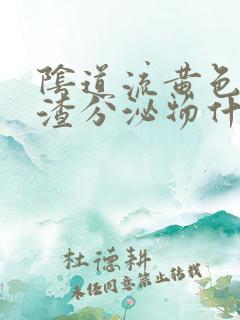 陰道流黄色
渣分泌物什
杜德耕
未经同意禁止转载